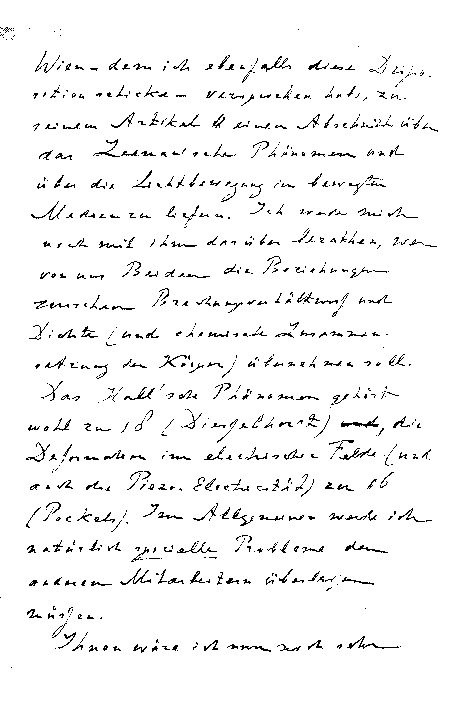 Wien – dem ich ebenfalls diese Dispo-
sition schicke – versprochen habe, zu
seinem Artikel einen Abschnitt über
das Zeeman'sche Phänomen und
über die Lichtbewegung in bewegten
Medien zu liefern. Ich werde mich
noch mit ihm darüber berathen, wer
von uns Beiden die Beziehungen
zwischen Brechungsverhältniss und
Dichte (und chemische Zusammen-
setzung der Körper) übernehmen soll.
Das Hall'sche Phänomen gehört
wohl zu 18 (Diesselhorst) und, die
Deformation im electrischen Felde (und
auch die Piezo-Electricität) zu 16
(Pockels). Im Allgemeinen werde ich
natürlich specielle Probleme den
anderen Mitarbeitern überlassen
müssen.
Ihnen wäre ich nun noch sehr